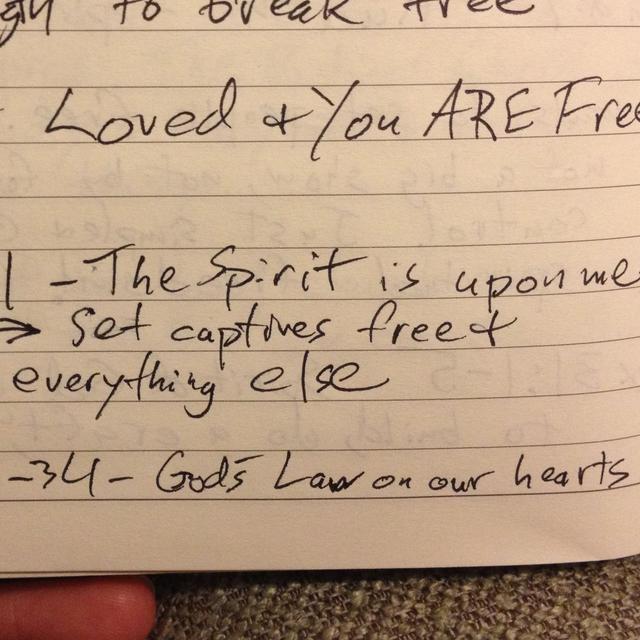 to break free
Loved & You ARE Free
1 - The Spirit is upon me
⇒ Set captives free &
everything else
-34 - God's Law on our hearts